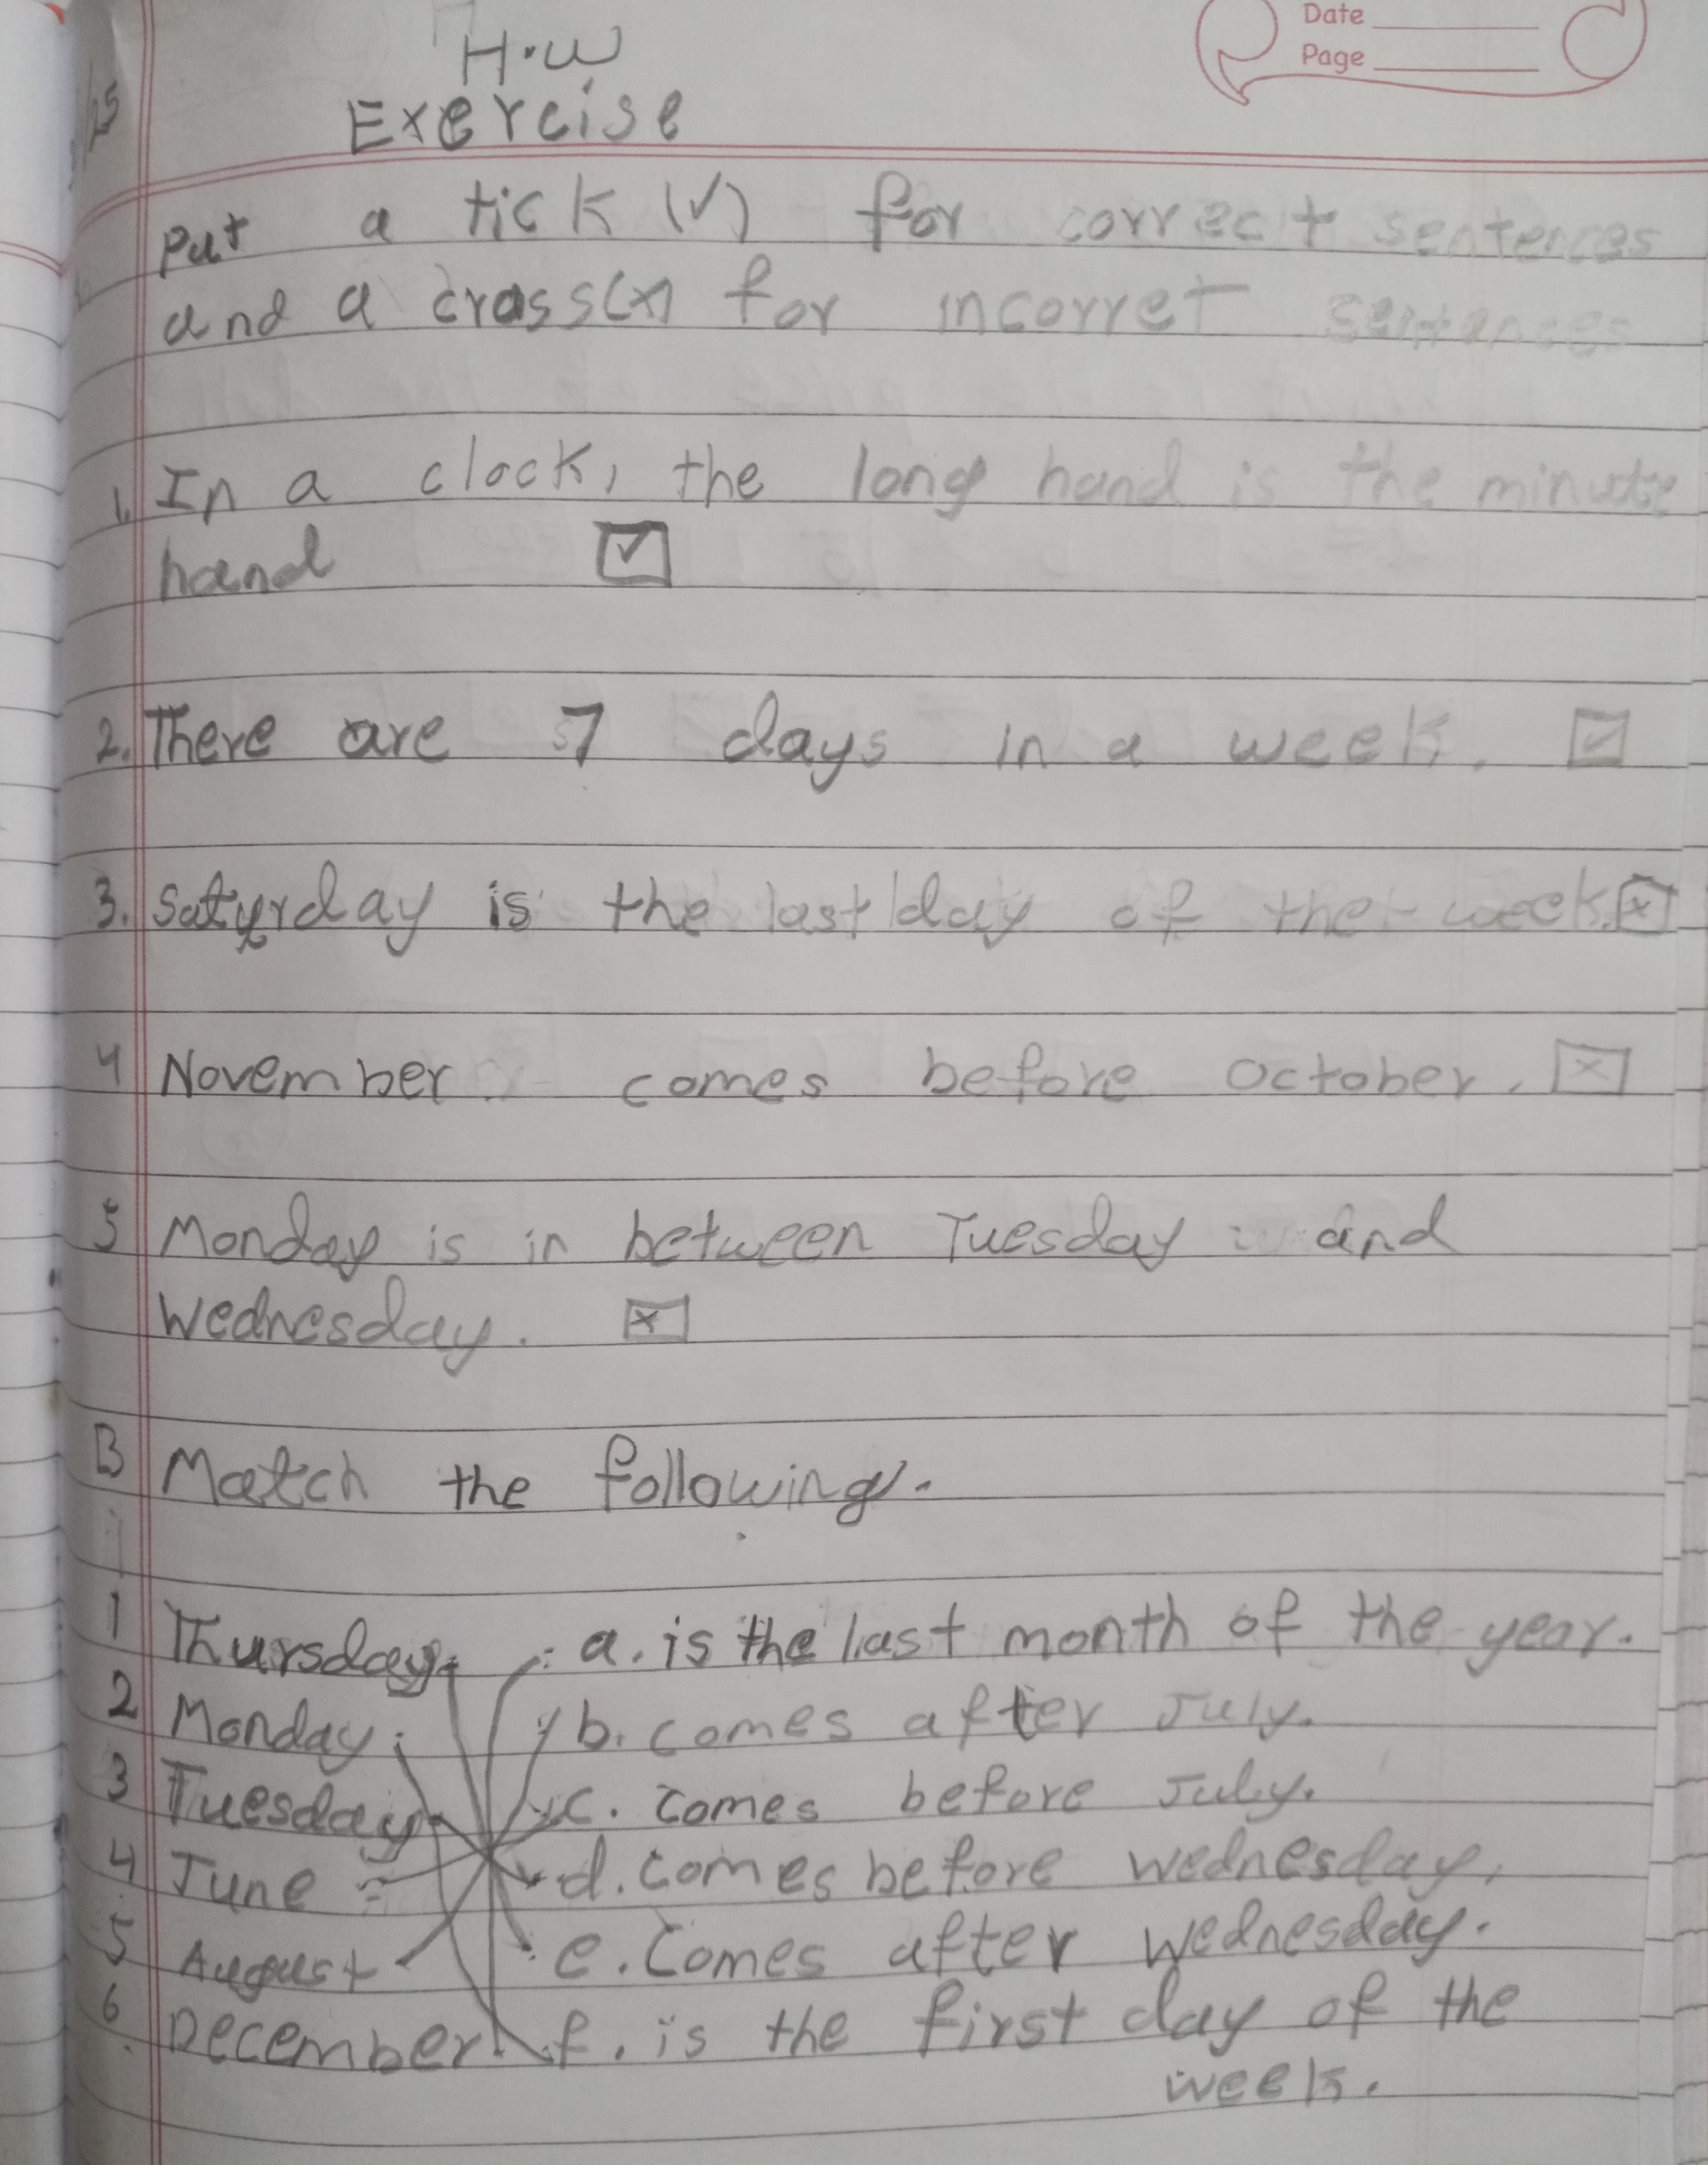 Date
Page
H.W
Exercise
Put a tick (✓) for correct sentences
and a cross(x) for incorret sentences
1. In a clock, the long hand is the minute
hand ☑
2. There are 7 days in a week. ☑
3. Saturday is the last day of the week. ☒
4 November comes before October. ☒
5 Monday is in between Tuesday and
Wednesday. ☒
B Match the following.
1 Thursday a. is the last month of the year.
2 Monday b. comes after July.
3 Tuesday c. comes before July.
4 June d. comes before wednesday.
5 August e. Comes after wednesday.
6 December f. is the first day of the
week.